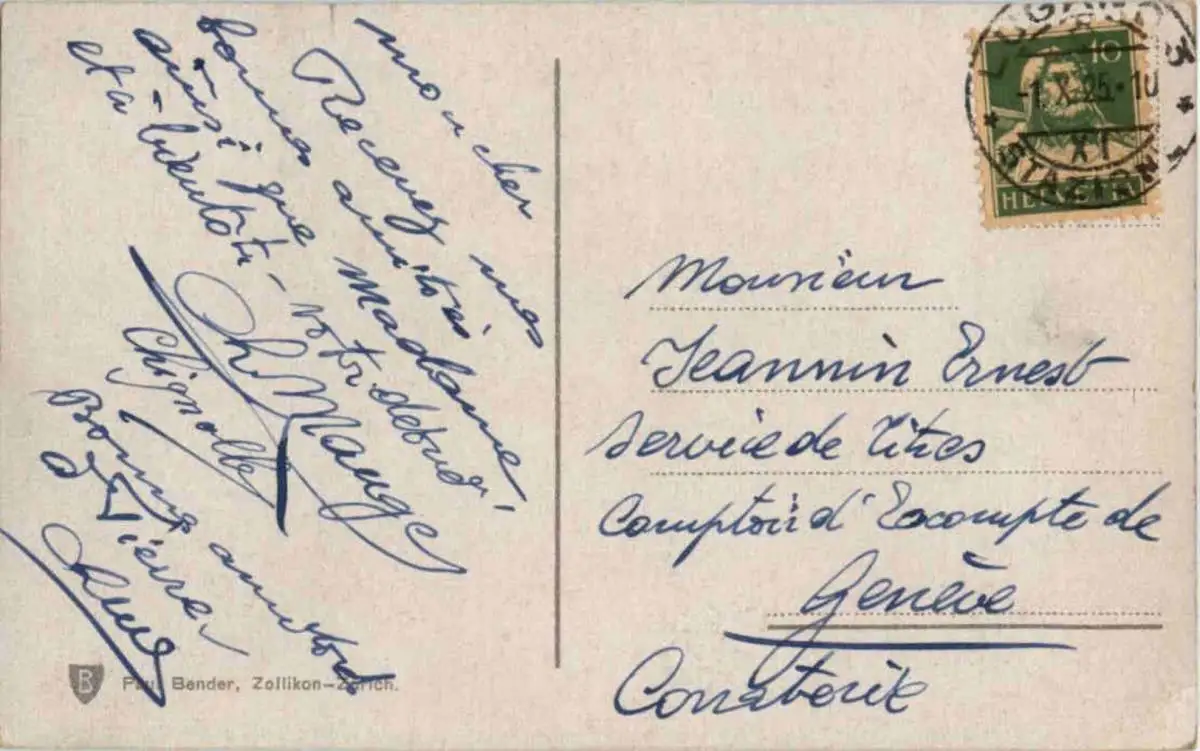 mon cher
Recevez mes
bonnes amitiés
ainsi que Madame,
et à bientôt - votre dévoué
Ch Mange
Chignolle
Bonnes amitiés
Monsieur
Jeannin Ernest
Service de Titres
Comptoir d'Escompte de
Genève
Corraterie
10
-1.X.25.-10
XI
STAZIONE
HELVETIA
B
Paul Bender, Zollikon-Zürich.